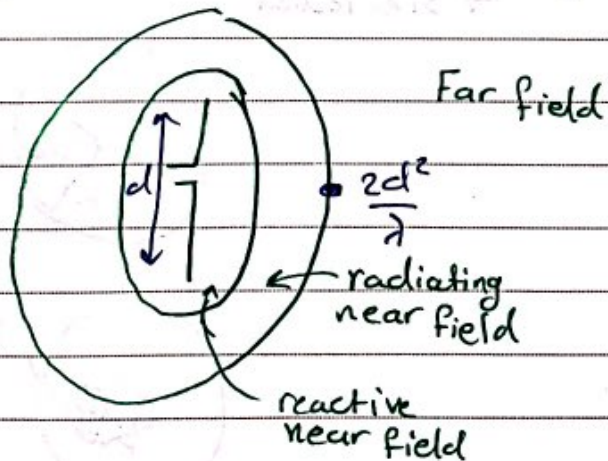 Far field
d
2d²
λ
radiating
near field
reactive
near field